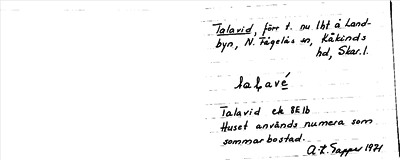 Talavid, förr t. nu lht å Land-
byn, N. Fågelås sn, Kåkinds
hd, Skar.l.
talavé
Talavid ek 8E1b
Huset används numera som
sommarbostad.
A.Z. Sapper 1971